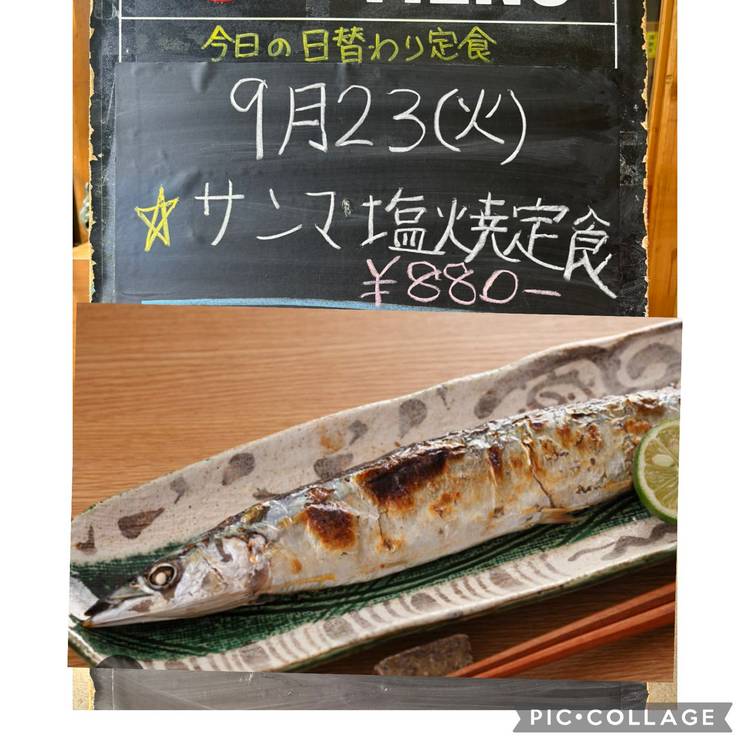 MENU
今日の日替わり定食
9月23(火)
☆サンマ塩焼定食
¥880-
PIC•COLLAGE